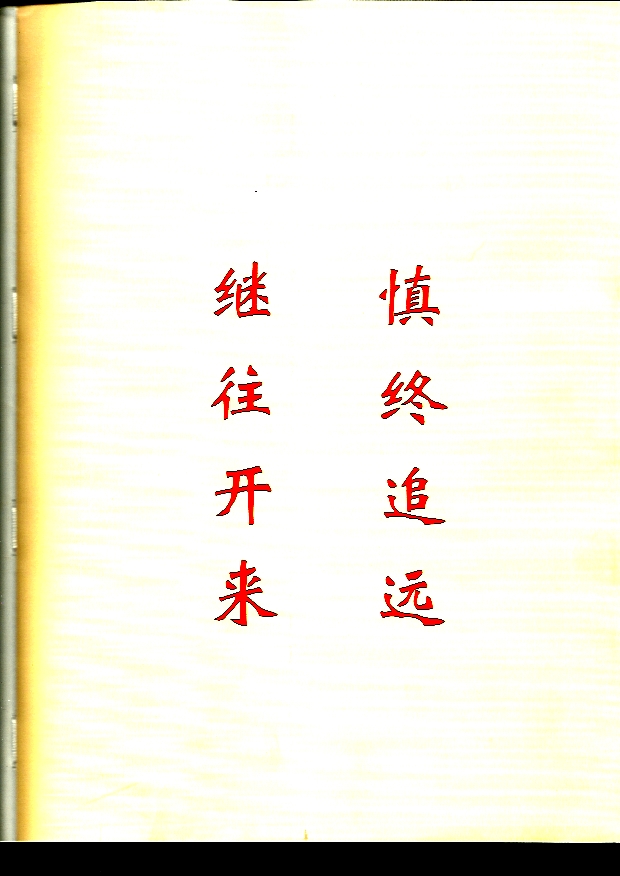 慎终追远
继往开来